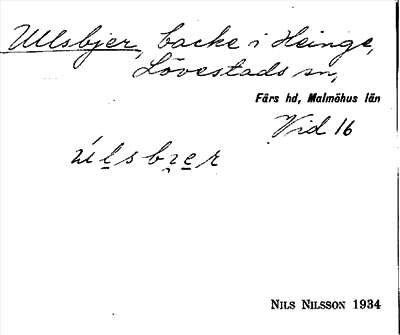 Ullsbjer, backe i Heinge,
Lövestads sn,
Färs hd, Malmöhus län
Vid 16
úlsbɪer
NILS NILSSON 1934